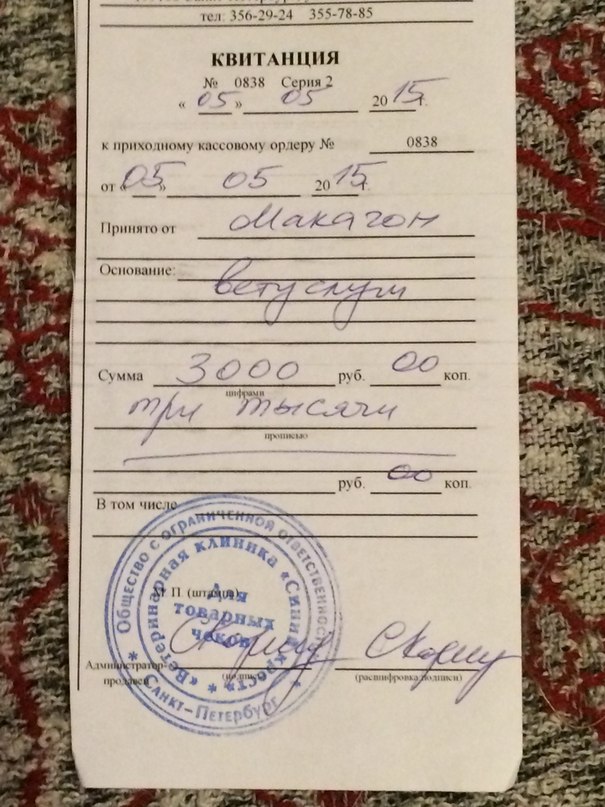 тел: 356-29-24 355-78-85
КВИТАНЦИЯ
№ 0838 Серия 2
« 05 » 05 20 15 г.
к приходному кассовому ордеру № 0838
от « 05 » 05 20 15 г.
Принято от Макагон
Основание: ветуслуги
Сумма 3000 руб. 00 коп.
цифрами
три тысячи
прописью
руб. 00 коп.
В том числе
М. П. (штампа)
Администратор-
продавец (подпись) (расшифровка подписи)
Общество с ограниченной ответственностью
* Санкт-Петербург *
Ветеринарная клиника «Синий крест»
Для
товарных
чеков